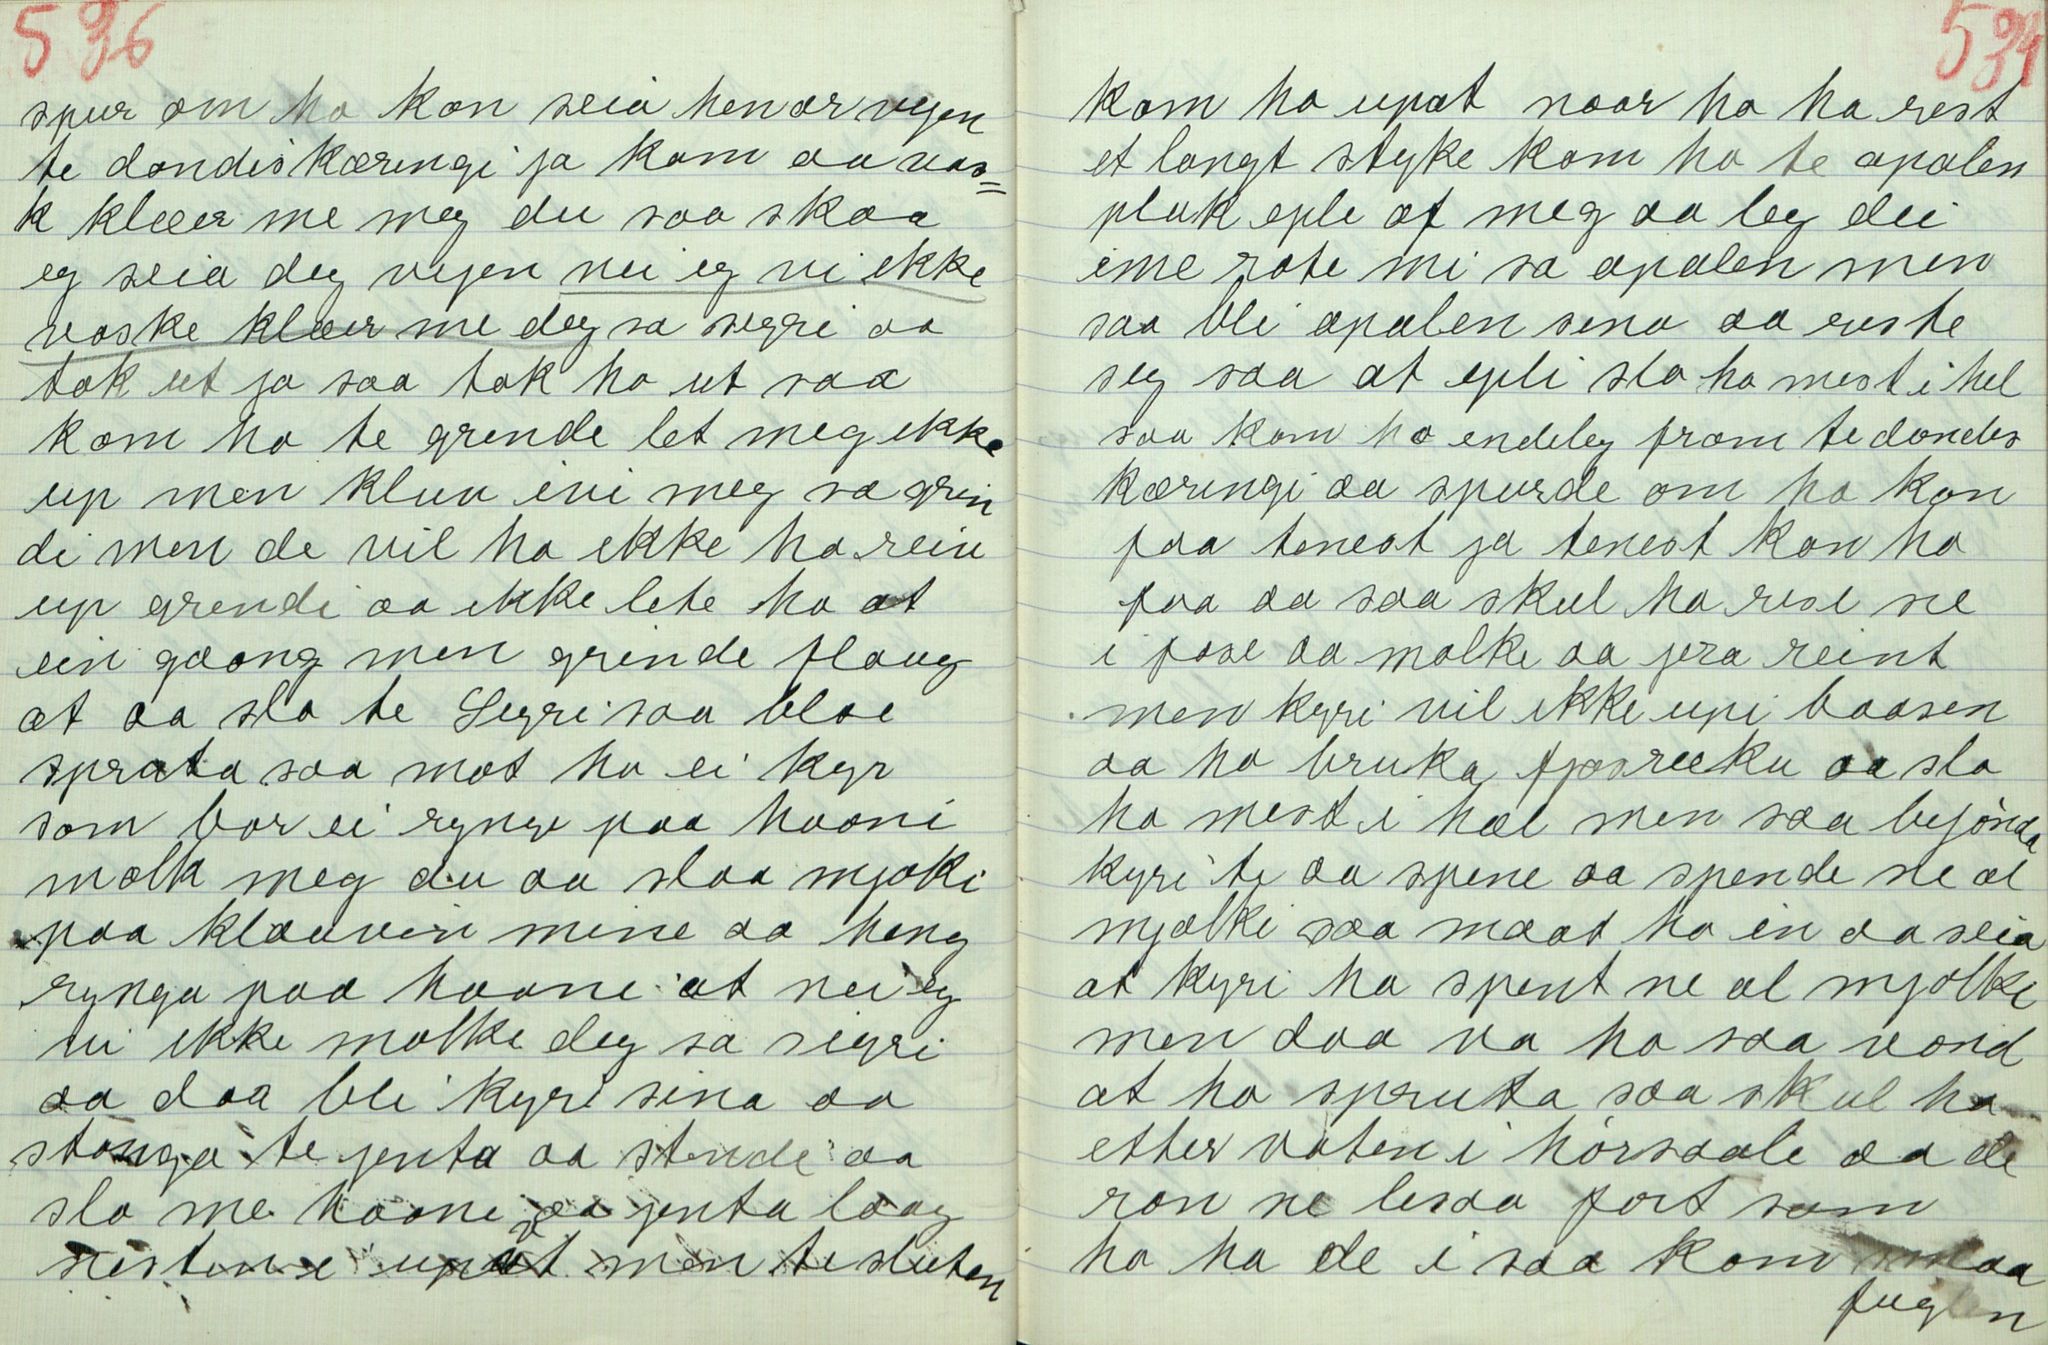 536
spur om ho kan seia hen ær vejen
te dondiskæringi ja kom aa vas=
k klæer me meg du saa skaa
eg seia deg vejen nei eg vi ikke
vaske klæer me deg sa segri aa
tok ut ja saa tok ho ut saa
kom ho te grende let meg ikke
up men kluv ivi meg sa grin
di men de vil ho ikke ho reiv
up grendi aa ikke lete ho at
ein gaang men grinde flaug
at aa slo te Segri saa bloe
spruta saa møt ho ei kyr
som bar ei rynge paa hooni
molk meg du aa slaa mjøki
paa klauven mine aa heng
rynga paa hoone at nei eg
vi ikke molke deg sa sigri
aa daa blei kyri sina aa
stonga te jenta aa stende aa
slo me hoone aa jenta laag
nesten i upøt men te sluten
534
kom ho upøt naar ho ha rest
et langt styke kom ho te apalen
pluk eple af meg aa leg dei
ime rote mi sa apalen men
saa blei apalen sena aa ruste
seg saa at epli slo ho mest i hel
saa kom ho endeleg fram te dondes
kæringi aa spurde om ho kan
faa tenest ja tenest kan ho
faa aa saa skul ho rese ne
i fose aa molke aa jera reint
men kyri vil ikke upi baasen
aa ho bruka fjøsreeku aa slo
ho mest i hæl men saa bejønda
kyri te aa spene aa spende ne al
mjølki saa maat ho in aa seia
at kyri ha spent ne al mjølki
men daa va ho saa vond
at ho spruta saa skul ho
etter vaten i hórsaale aa de
ran ne lesaa fort som
ho ha de i saa kom smaa
fuglen